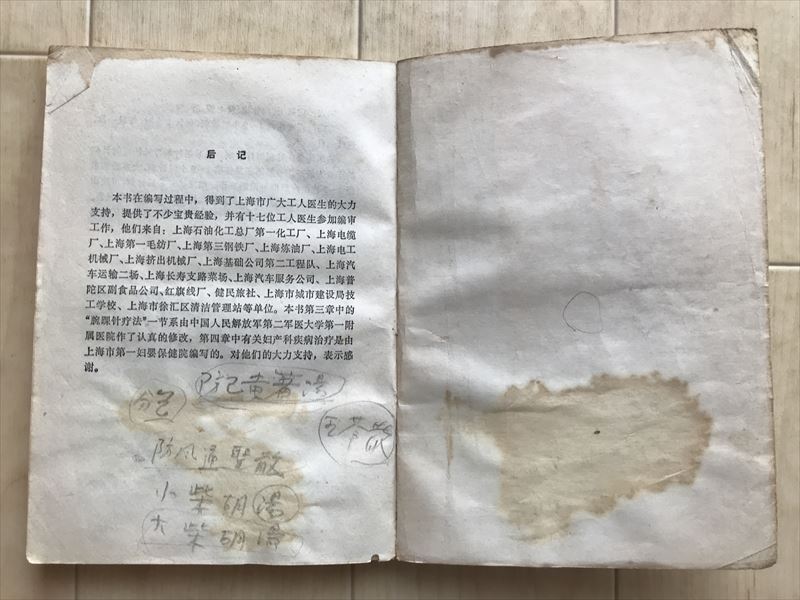 后记
本书在编写过程中，得到了上海市广大工人医生的大力
支持，提供了不少宝贵经验，并有十七位工人医生参加编审
工作，他们来自：上海石油化工总厂第一化工厂、上海电缆
厂、上海第一毛纺厂、上海第三钢铁厂、上海炼油厂、上海电工
机械厂、上海挤出机械厂、上海基础公司第二工程队、上海汽
车运输二场、上海长寿支路菜场、上海汽车服务公司、上海普
陀区副食品公司、红旗线厂、健民旅社、上海市城市建设局技
工学校、上海市徐汇区清洁管理站等单位。本书第三章中的
“腕踝针疗法”一节系由中国人民解放军第二军医大学第一附
属医院作了认真的修改，第四章中有关妇产科疾病治疗是由
上海市第一妇婴保健院编写的。对他们的大力支持，表示感
谢。
防己黄蓍湯
防风通聖散
小柴胡湯
大柴胡湯